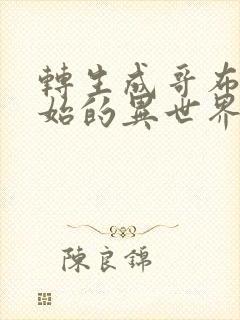 轉生成哥布
始的異世界
陳良錦